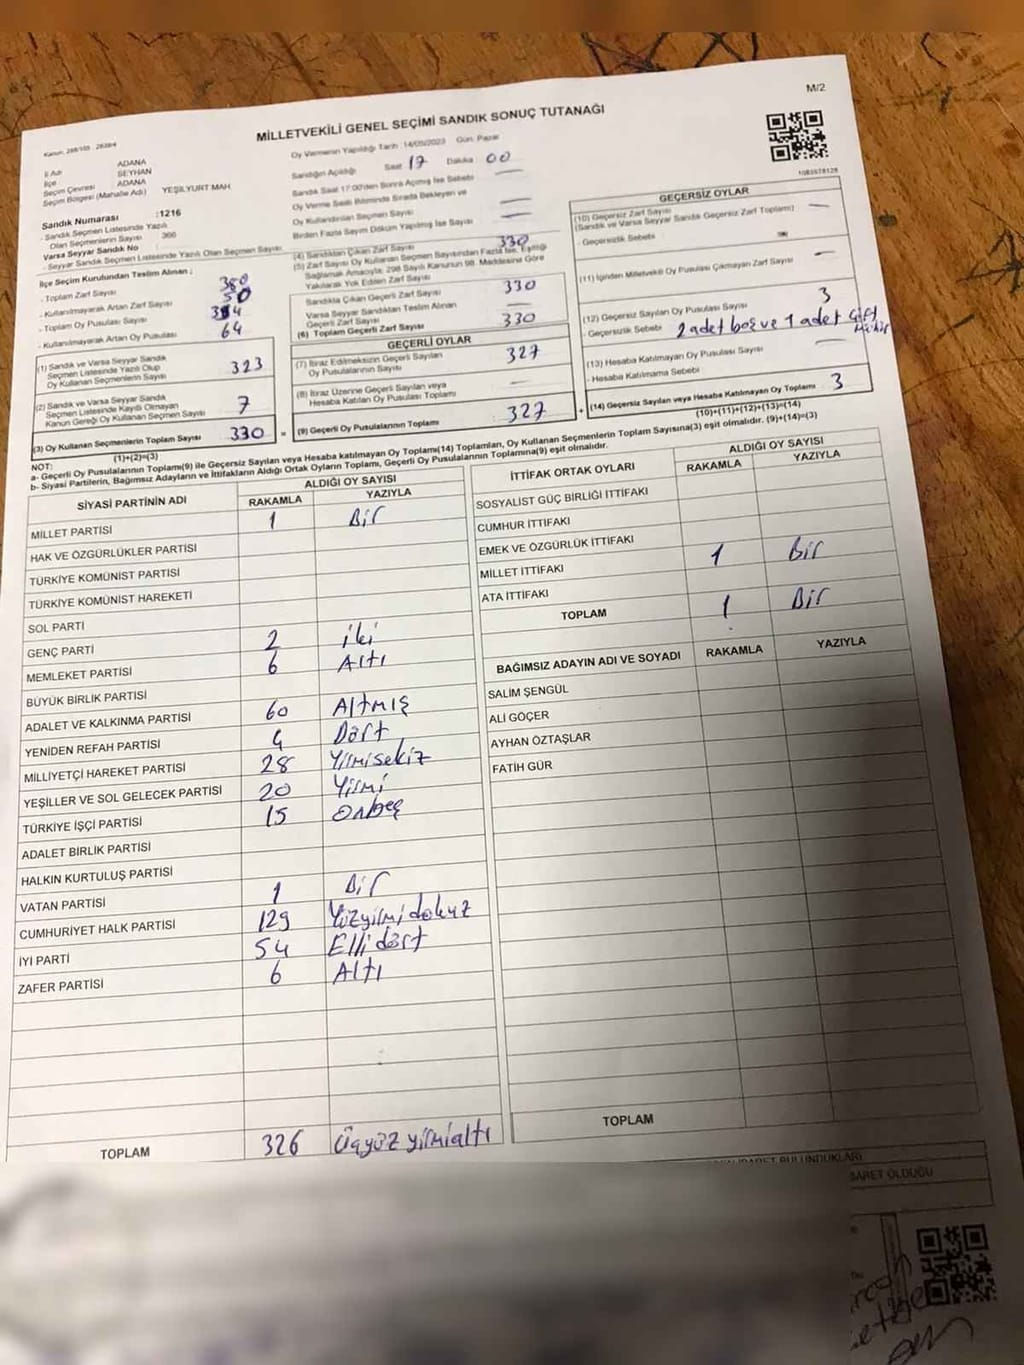 M/2
MİLLETVEKİLİ GENEL SEÇİMİ SANDIK SONUÇ TUTANAĞI
İl Adı ADANA
İlçe SEYHAN
Seçim Çevresi ADANA
Seçim Bölgesi (Mahalle Adı) YEŞİLYURT MAH
Sandık Numarası :1216
- Sandık Seçmen Listesinde Yazılı
Olan Seçmenlerin Sayısı 366
Varsa Seyyar Sandık No
- Seyyar Sandık Seçmen Listesinde Yazılı Olan Seçmen Sayısı
İlçe Seçim Kurulundan Teslim Alınan ;
- Toplam Zarf Sayısı 380
- Kullanılmayarak Artan Zarf Sayısı 50
- Toplam Oy Pusulası Sayısı
- Kullanılmayarak Artan Oy Pusulası 64
(1) Sandık ve Varsa Seyyar Sandık
Seçmen Listesinde Yazılı Olup
Oy Kullanan Seçmenlerin Sayısı 323
(2) Sandık ve Varsa Seyyar Sandık
Seçmen Listesinde Kaydı Olmayan
Kanun Gereği Oy Kullanan Seçmen Sayısı 7
(3) Oy Kullanan Seçmenlerin Toplam Sayısı 330 =
(1)+(2)=(3)
Oy Vermenin Yapıldığı Tarih :14/05/2023 Gün: Pazar
Sandığın Açıldığı Saat 17 Dakika 00
Sandık Saat 17:00'den Sonra Açmış İse Sebebi
Oy Verme Saati Bitiminde Sırada Bekleyen ve
Oy Kullandırılan Seçmen Sayısı
Birden Fazla Sayım Döküm Yapılmış İse Sayısı
(4) Sandıktan Çıkan Zarf Sayısı 330
(5) Zarf Sayısı Oy Kullanan Seçmen Sayısından Fazla İse, Eşitliği
Sağlamak Amacıyla, 298 Sayılı Kanunun 98. Maddesine Göre
Yakılarak Yok Edilen Zarf Sayısı
Sandıkta Çıkan Geçerli Zarf Sayısı 330
Varsa Seyyar Sandıktan Teslim Alınan
Geçerli Zarf Sayısı
(6) Toplam Geçerli Zarf Sayısı 330
GEÇERLİ OYLAR
(7) İtiraz Edilmeksizin Geçerli Sayılan
Oy Pusulalarının Sayısı 327
(8) İtiraz Üzerine Geçerli Sayılan veya
Hesaba Katılan Oy Pusulası Toplamı
(9) Geçerli Oy Pusulalarının Toplamı 327 +
1083578128
GEÇERSİZ OYLAR
(10) Geçersiz Zarf Sayısı
(Sandık ve Varsa Seyyar Sandık Geçersiz Zarf Toplamı)
- Geçersizlik Sebebi
(11) İçinden Milletvekili Oy Pusulası Çıkmayan Zarf Sayısı
(12) Geçersiz Sayılan Oy Pusulası Sayısı 3
- Geçersizlik Sebebi 2 adet boş ve 1 adet Çift Mühür
(13) Hesaba Katılmayan Oy Pusulası Sayısı
- Hesaba Katılmama Sebebi
(14) Geçersiz Sayılan veya Hesaba Katılmayan Oy Toplamı 3
(10)+(11)+(12)+(13)=(14)
NOT:
a- Geçerli Oy Pusulalarının Toplamı(9) ile Geçersiz Sayılan veya Hesaba katılmayan Oy Toplamı(14) Toplamları, Oy Kullanan Seçmenlerin Toplam Sayısına(3) eşit olmalıdır. (9)+(14)=(3)
b- Siyasi Partilerin, Bağımsız Adayların ve İttifakların Aldığı Ortak Oyların Toplamı, Geçerli Oy Pusulalarının Toplamına(9) eşit olmalıdır.
SİYASİ PARTİNİN ADI ALDIĞI OY SAYISI
RAKAMLA YAZIYLA
MİLLET PARTİSİ 1 Bir
HAK VE ÖZGÜRLÜKLER PARTİSİ
TÜRKİYE KOMÜNİST PARTİSİ
TÜRKİYE KOMÜNİST HAREKETİ
SOL PARTİ
GENÇ PARTİ 2 iki
MEMLEKET PARTİSİ 6 Altı
BÜYÜK BİRLİK PARTİSİ
ADALET VE KALKINMA PARTİSİ 60 Altmış
YENİDEN REFAH PARTİSİ 4 Dört
MİLLİYETÇİ HAREKET PARTİSİ 28 Yirmisekiz
YEŞİLLER VE SOL GELECEK PARTİSİ 20 Yirmi
TÜRKİYE İŞÇİ PARTİSİ 15 Onbeş
ADALET BİRLİK PARTİSİ
HALKIN KURTULUŞ PARTİSİ
VATAN PARTİSİ 1 Bir
CUMHURİYET HALK PARTİSİ 129 Yüzyirmidokuz
İYİ PARTİ 54 Ellidört
ZAFER PARTİSİ 6 Altı
TOPLAM 326 Üçyüz yirmialtı
İTTİFAK ORTAK OYLARI ALDIĞI OY SAYISI
RAKAMLA YAZIYLA
SOSYALİST GÜÇ BİRLİĞİ İTTİFAKI
CUMHUR İTTİFAKI
EMEK VE ÖZGÜRLÜK İTTİFAKI
MİLLET İTTİFAKI 1 Bir
ATA İTTİFAKI
TOPLAM 1 Bir
BAĞIMSIZ ADAYIN ADI VE SOYADI RAKAMLA YAZIYLA
SALİM ŞENGÜL
ALİ GÖÇER
AYHAN ÖZTAŞLAR
FATİH GÜR
TOPLAM
BULUNDUKLARI
OLDUĞU